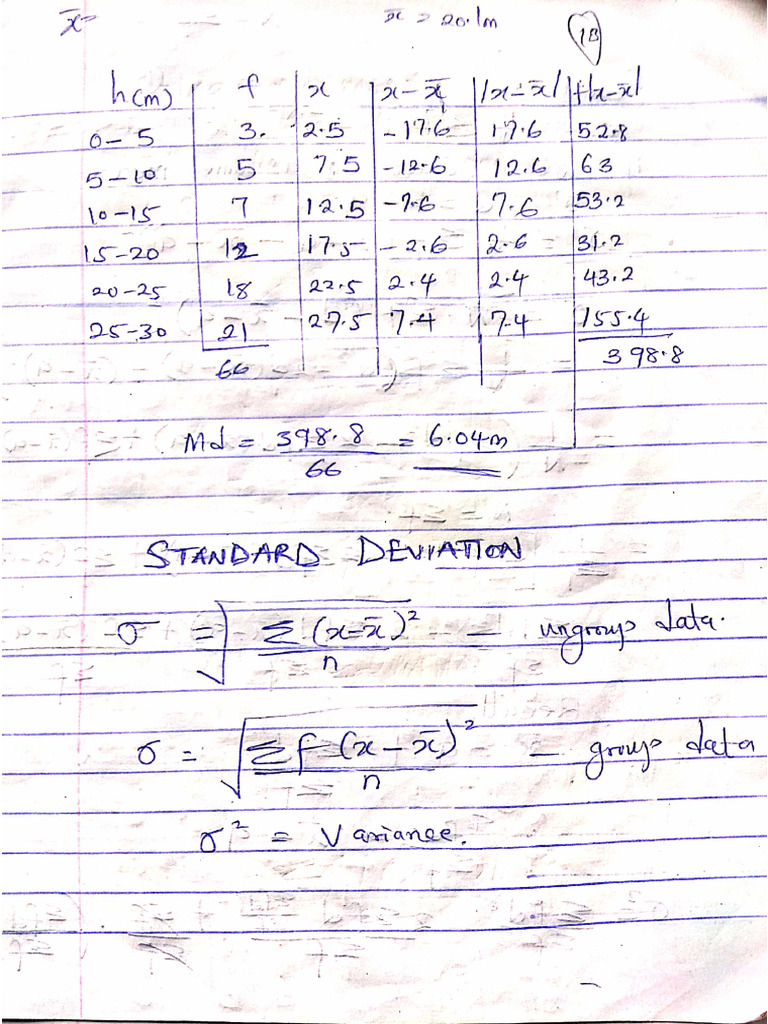 x̄= x̄ = 20.1m 1B
h(m) f x x-x̄ |x-x̄| f|x-x̄|
0-5 3. 2.5 -17.6 17.6 52.8
5-10 5 7.5 -12.6 12.6 63
10-15 7 12.5 -7.6 7.6 53.2
15-20 12 17.5 -2.6 2.6 31.2
20-25 18 22.5 2.4 2.4 43.2
25-30 21 27.5 7.4 7.4 155.4
66 398.8
Md = 398.8/66 = 6.04m
STANDARD DEVIATION
σ = √(Σ(x-x̄)²/n) - ungroup data.
σ = √(Σf(x-x̄)²/n) - group data
σ² = Variance.